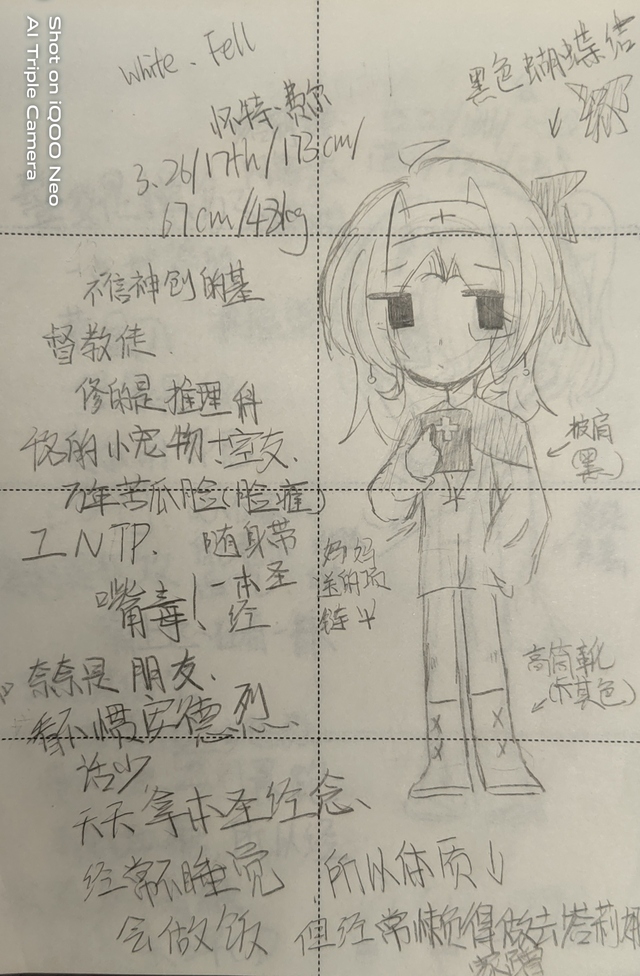 Shot on iQOO Neo
AI Triple Camera
White . Fell
怀特·费尔
黑色蝴蝶结
3.26/17th/173cm/
67cm/42kg
不信神创的基
督教徒
修的是推理科
的小宠物+室友、
万年苦瓜脸(脸瘫)
INTP. 随身带
一本圣
经
嘴毒!
披肩
(黑)
妈妈
送的项
链
高筒靴
奈奈是朋友、
看不惯安德烈、
话少
天天拿本圣经念、
经常不睡觉 所以体质↓
会做饭 但经常懒得做去塔莉